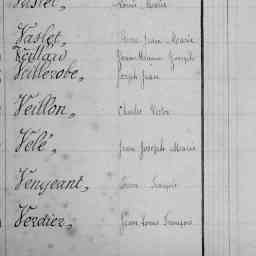 Vaslet, Pierre Jean Marie
Veillard Jean Marie Joseph
Veillerobe, Joseph Jean
Veillon, Charles Victor
Velé, Jean Joseph Marie
Vengeant, François
Verdier, Jean Louis François